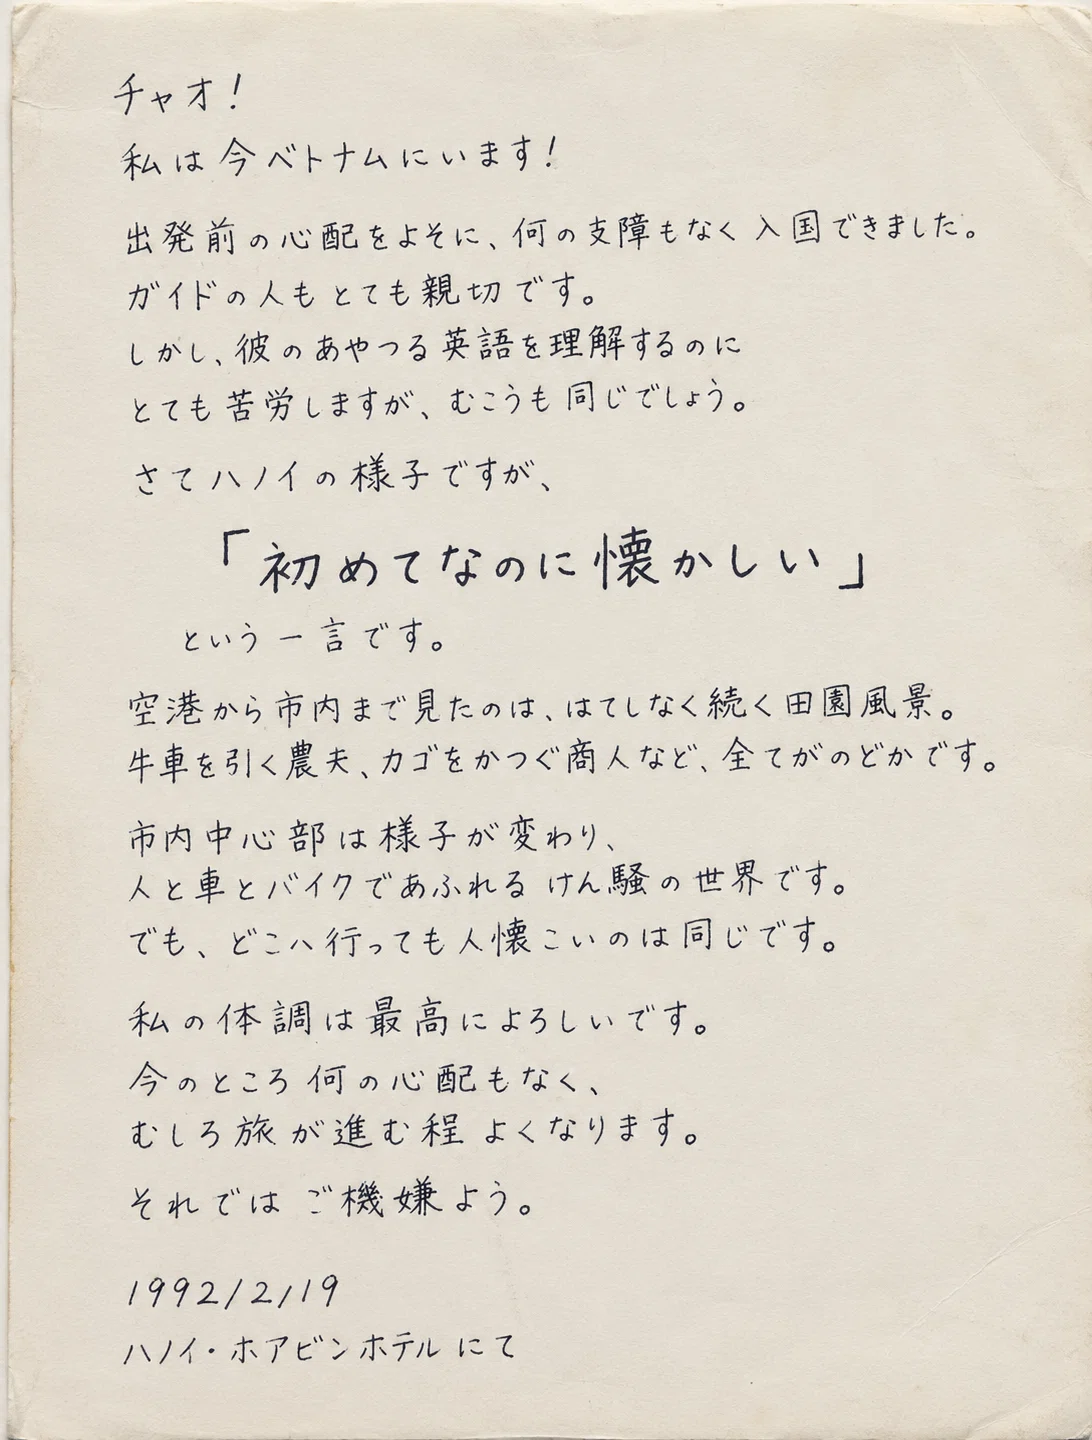 チャオ!
私は今ベトナムにいます!
出発前の心配をよそに、何の支障もなく入国できました。
ガイドの人もとても親切です。
しかし、彼のあやつる英語を理解するのに
とても苦労しますが、むこうも同じでしょう。
さてハノイの様子ですが、
「初めてなのに懐かしい」
という一言です。
空港から市内まで見たのは、はてしなく続く田園風景。
牛車を引く農夫、カゴをかつぐ商人など、全てがのどかです。
市内中心部は様子が変わり、
人と車とバイクであふれるけん騒の世界です。
でも、どこへ行っても人懐こいのは同じです。
私の体調は最高によろしいです。
今のところ何の心配もなく、
むしろ旅が進む程よくなります。
それではご機嫌よう。
1992/2/19
ハノイ・ホアビンホテルにて